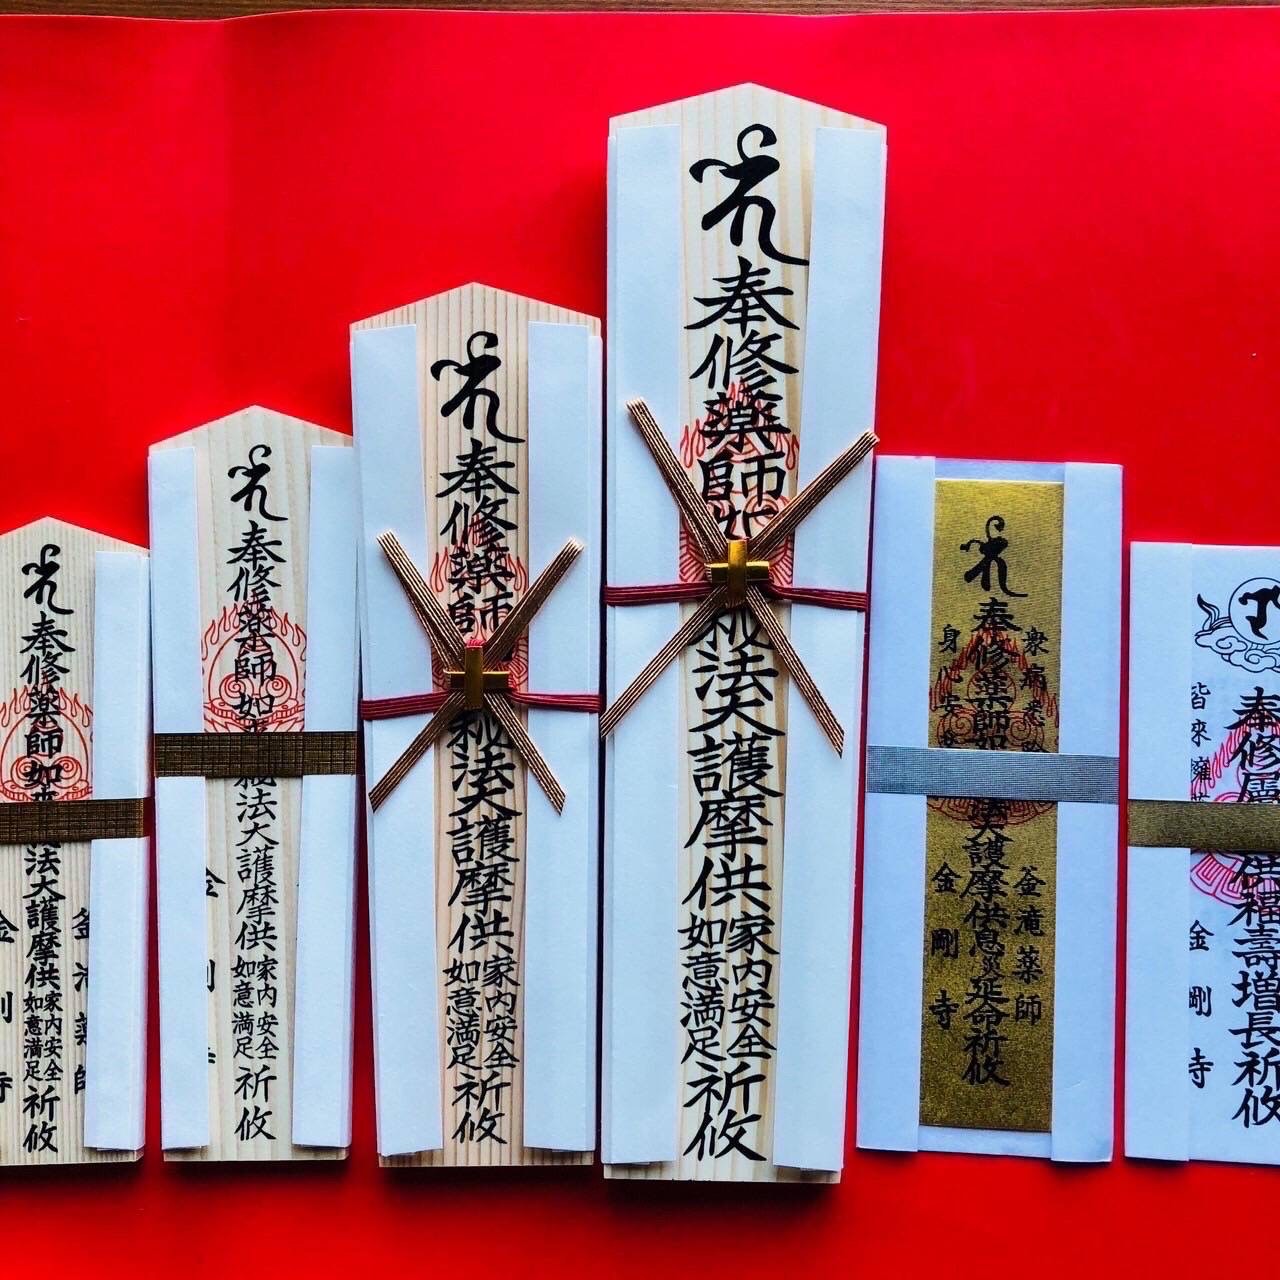 奉修薬師如
法大護摩供
家内安全
如意満足
祈攸
奉修薬師如
法大護摩供
家内安全
如意満足
祈攸
奉修薬師
秘法大護摩供
家内安全
如意満足
祈攸
奉修薬師
秘法大護摩供
家内安全
如意満足
祈攸
釜滝薬師
奉修薬師如
法大護摩供息災延命祈攸
金剛寺
奉修
供福壽増長祈攸
皆来
金剛寺